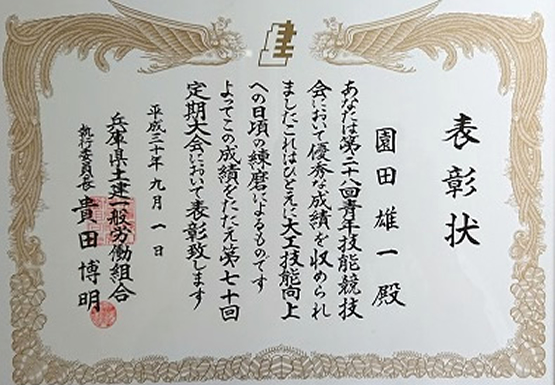 表彰状
園田雄一殿
あなたは第二十八回青年技能競技
会において優秀な成績を収められ
ましたこれはひとえに大工技能向上
への日頃の練磨によるものです
よってこの成績をたたえ第七十回
定期大会において表彰致します
平成三十年九月一日
兵庫県土建一般労働組合
執行委員長 貴田博明